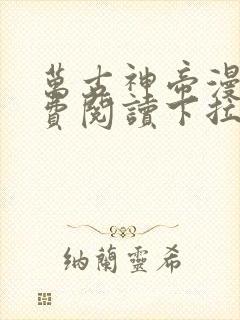 萬古神帝漫
費閱讀下拉
纳蘭靈希